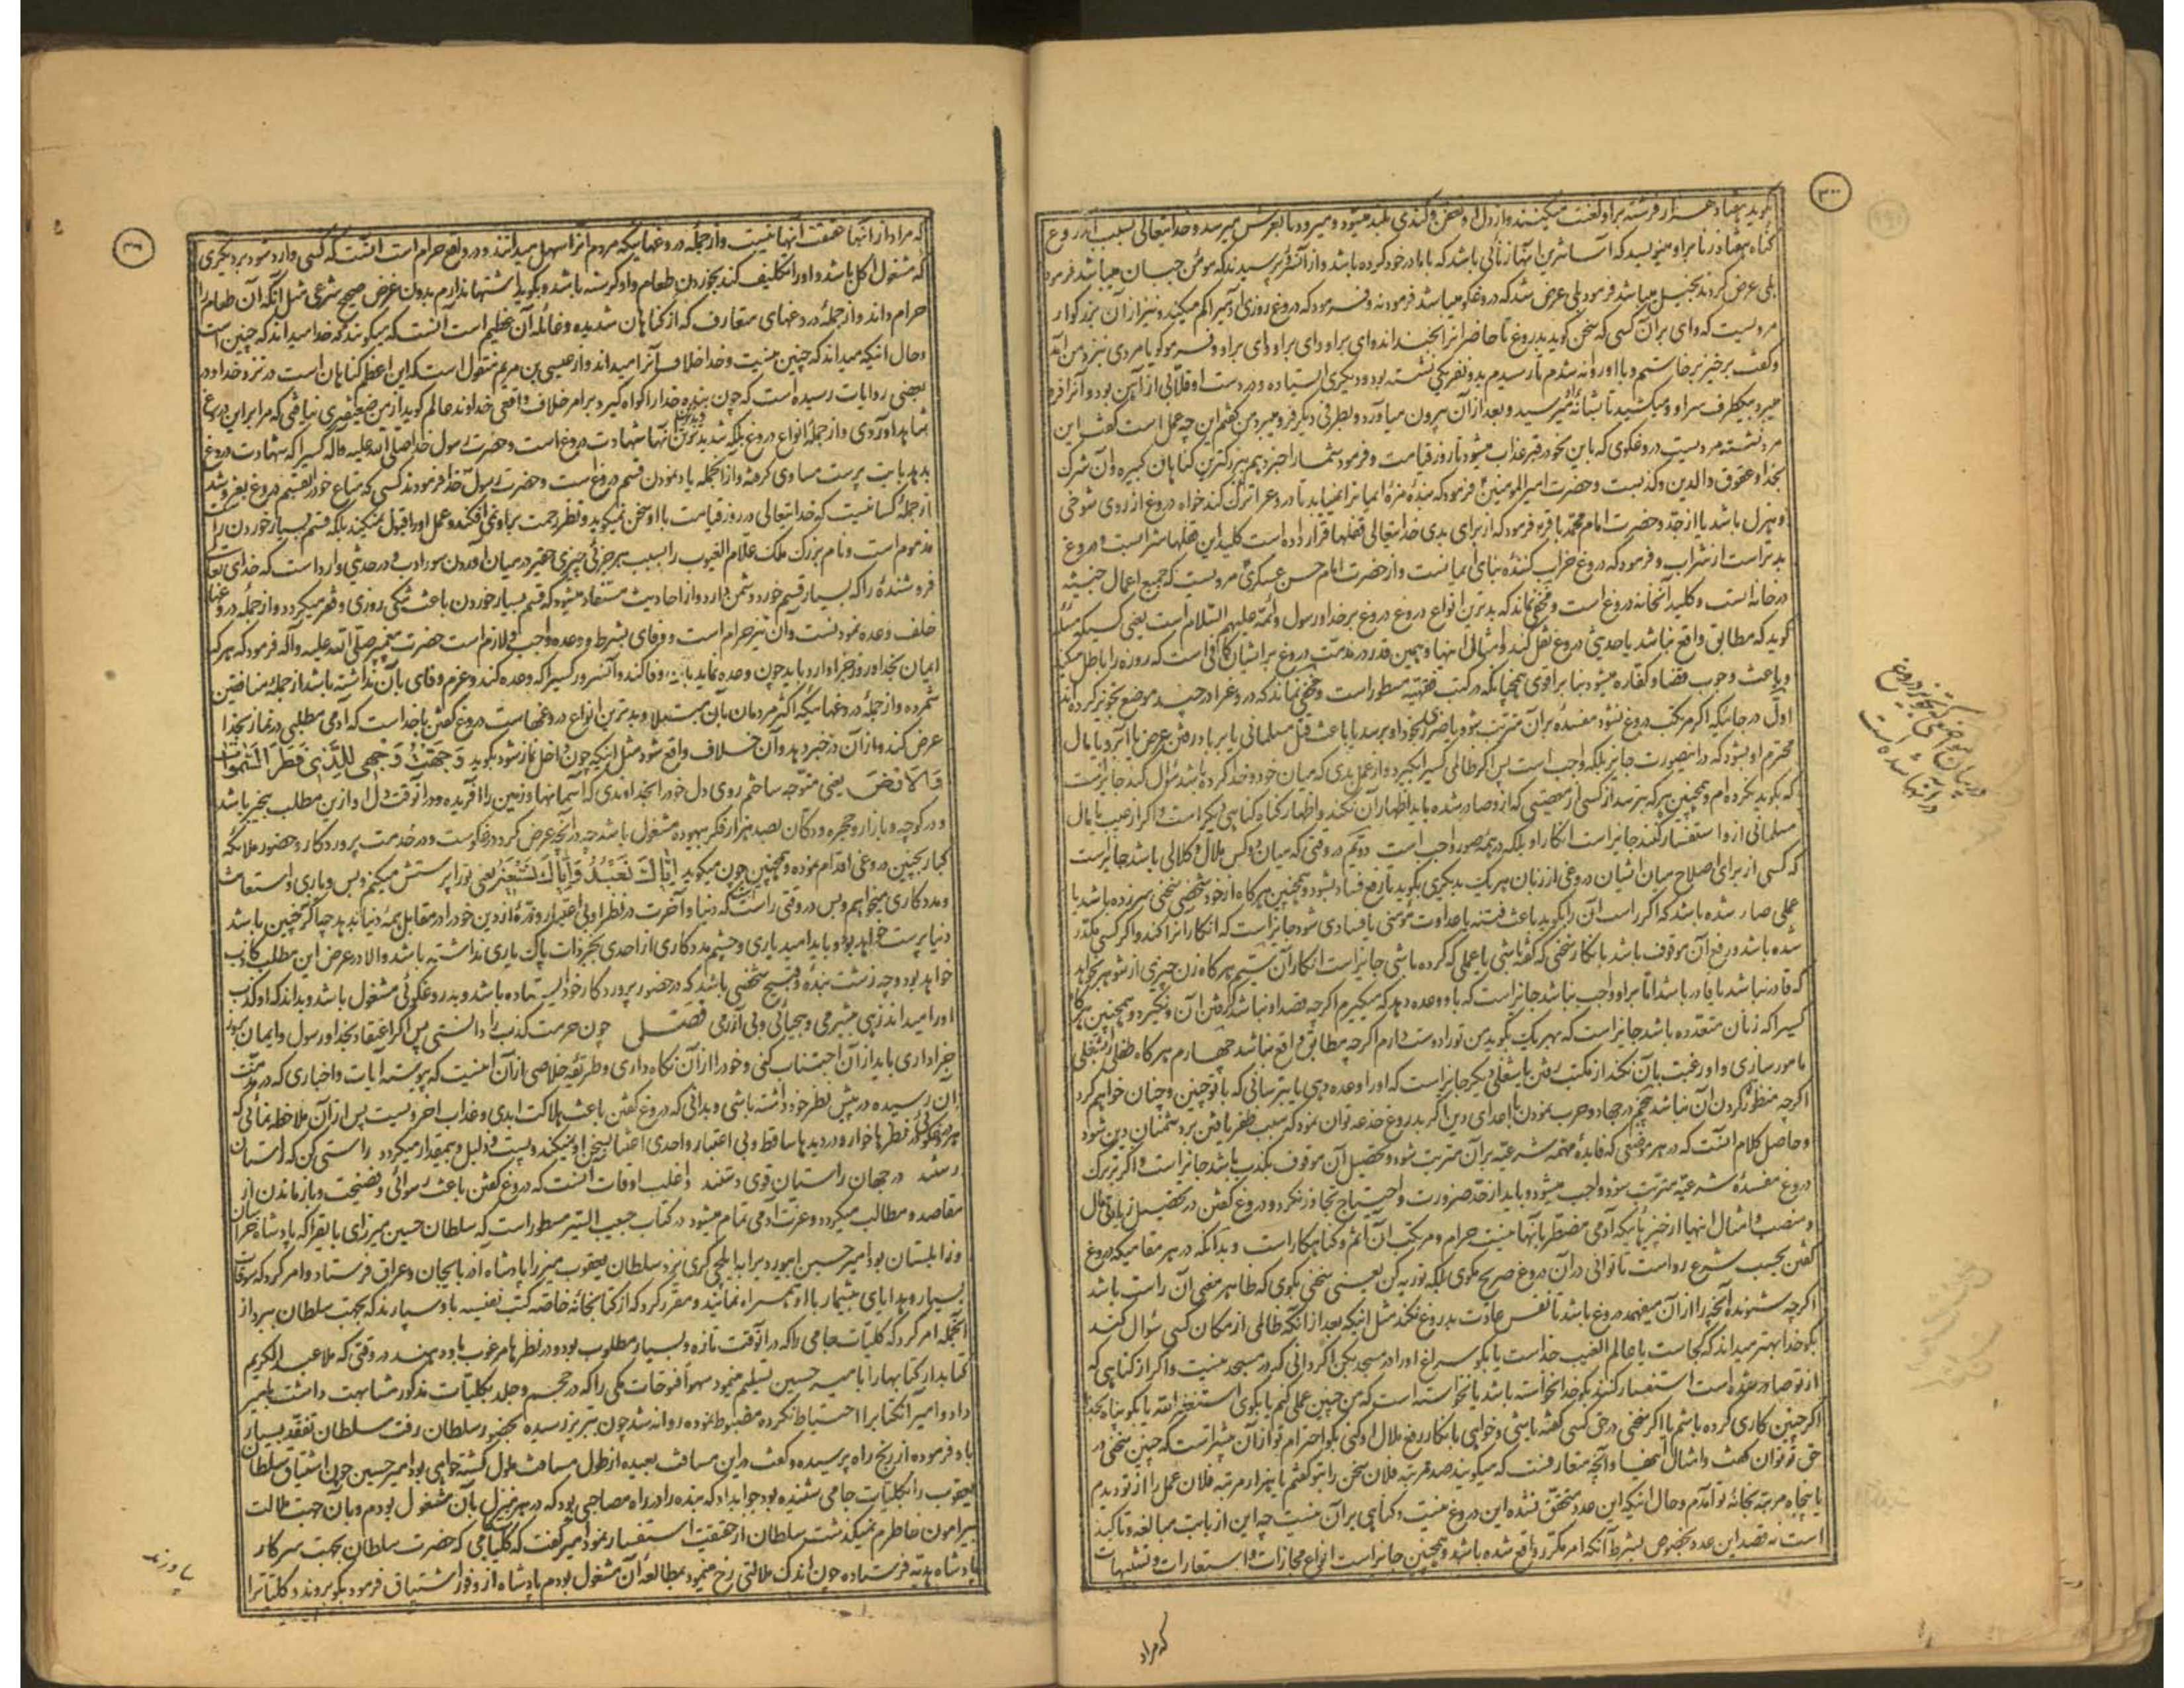 ۳۰۰
بگوید هفتاد هزار فرشته براو لعنت میکنند و از دل او تعفن و گندی بلند میشود و میرود تا بعرش میرسد و خدایتعالی بسبب آن دروغ
گناه هفتاد زنا براو مینویسد که آسانترین آنها زنائی باشد که با مادر خود کرده باشد و از آنسرور پرسیدند که مؤمن جبان میباشد فرمود
بلی عرض کردند بخیل میباشد فرمود بلی عرض شد که دروغگو میباشد فرمود نه و فرمود که دروغ روزی آدمیرا کم میکند و نیز از آن بزرگوار
مرویست که وای بر آن کسی که سخن گوید بدروغ تا حاضرانرا بخنداند وای براو وای براو وای براو و فرمود گویا مردی نزد من آمد
و گفت برخیز برخاستم و با او روانه شدم تا رسیدم بدو نفر یکی نشسته بود و دیگری ایستاده و در دست او قلابی از آهن بود و آنرا فرو
میبرد بیکطرف سر او و میکشید تا بشانه‌اش میرسید و بعد از آن بیرون میآورد و بطرفی دیگر فرو میبرد من گفتم این چه عمل است گفت این
مرد نشسته مردیست دروغگوی که باین نحو در قبر عذاب میشود تا روز قیامت و فرمود شما را خبر دهم ببزرگترین گناهان کبیره و آن شرک
بخدا و عقوق والدین و کذبست و حضرت امیرالمومنین فرمود که بنده مزهٔ ایمانرا نمییابد تا دروغرا ترک کند خواه دروغ از روی شوخی
و هزل باشد یا از جد و حضرت امام محمد باقر ع فرمود که از برای بدی خدایتعالی قفلها قرار داده است کلید این قفلها شرابست و دروغ
بدتر است از شراب و فرمود که دروغ خراب کنندهٔ بنای ایمانست و از حضرت امام حسن عسکری مرویست که جمیع اعمال خبیثه
در خانه است و کلید آنخانه دروغ است و مخفی نماند که بدترین انواع دروغ دروغ بر خدا و رسول و ائمه علیهم السلام است یعنی کسیکه مسئله
گوید که مطابق واقع نباشد یا حدیثی دروغ نقل کند و امثال اینها و همین قدر در مذمت دروغ بر ایشان کافی است که روزه را باطل میکند
و باعث وجوب قضا و کفاره میشود بنا بر اقوی همچنانکه در کتب فقهیه مسطور است و مخفی نماند که دروغرا در چند موضع تجویز کرده‌اند
اول در جائیکه اگر مرتکب دروغ نشود مفسدهٔ بر آن مترتب شود یا ضرری بخود او برسد یا باعث قتل مسلمانی یا بر باد رفتن عرض یا آبرو یا مال
محترم او بشود که در اینصورت جایز بلکه واجب است پس اگر ظالمی کسیرا بگیرد و از عمل بدی که میان خود و خدا کرده باشد سؤال کند جایزست
که بگوید نکرده‌ام و همچنین هر که بپرسد از کسی از معصیتی که از و صادر شده باید اظهار آن نکند و اظهار گناه گناهی دیگر است و اگر از عیب یا مال
مسلمانی از و استفسار کنند جایز است انکار او بلکه در همهٔ صور واجب است دویم در وقتی که میان دو کس ملال و کلالی باشد جایزاست
که کسی از برای اصلاح میان ایشان دروغی از زبان هر یک بدیگری بگوید تا رفع فساد بشود و همچنین هر گاه از خود شخصی سخنی سر زده باشد یا
عملی صادر شده باشد که اگر راست آن را بگوید باعث فتنه یا عداوت مؤمنی یا فسادی شود جایز است که انکار آنرا کند و اگر کسی مکدر
شده باشد و رفع آن موقوف باشد بانکار سخنی که گفته باشی یا عملی که کرده باشی جایز است انکار آن سیم هر گاه زن چیزی از شوهر بخواهد
که قادر نباشد یا قادر باشد اما بر او واجب نباشد جایز است که باو وعده دهد که میگیرم اگرچه قصد او نباشد گرفتن آن و نگیرد و همچنین هر گاه
کسیرا که زنان متعدده باشد جایز است که بهر یک بگوید من تو را دوست دارم اگرچه مطابق واقع نباشد چهارم هر گاه طفلی را بشغلی
مامور سازی و او رغبت بآن نکند از مکتب رفتن یا شغلی دیگر جایز است که او را وعده دهی یا بترسانی که با تو چنین و چنان خواهم کرد
اگرچه منظور کردن آن نباشد پنجم در جهاد و حرب نمودن با اعدای دین اگر بدروغ خدعه توان نمود که سبب ظفر یافتن بر دشمنان دین شود
و حاصل کلام آنست که در هر موضعی که فایدهٔ مهمه شرعیه بر آن مترتب شود و تحصیل آن موقوف بکذب باشد جایز است و اگر بر ترک
دروغ مفسدهٔ شرعیه مترتب شود واجب میشود و باید از حد ضرورت و احتیاج تجاوز نکرد و دروغ گفتن در تحصیل زیادتی مال
و منصب و امثال اینها از چیزهائیکه آدمی مضطر بآنها نیست حرام و مرتکب آن آثم و گناهکار است و بدانکه در هر مقامیکه دروغ
گفتن بحسب شرع رواست تا توانی در آن دروغ صریح مگوی بلکه توریه کن یعنی سخنی بگوی که ظاهر معنی آن راست باشد
اگرچه شنونده آنچه را از آن میفهمد دروغ باشد تا نفس عادت بدروغ نکند مثل اینکه بعد از آنکه ظالمی از مکان کسی سؤال کند
بگو خدا بهتر میداند که کجاست یا عالم الغیب خداست یا بگو سراغ او را در مسجد بکن اگر دانی که در مسجد نیست و اگر از گناهی که
از تو صادر شده است استفسار کنند بگو خدا نخواسته باشد یا نخواسته است که من چنین عملی کنم یا بگوی استغفر الله یا بگو پناه بخدا
اگر چنین کاری کرده باشم یا اگر سخنی در حق کسی گفته باشی و خواهی بانکار رفع ملال او کنی بگو احترام تو از آن بیشتر است که چنین سخنی در
حق تو توان گفت و امثال اینها و آنچه متعارفست که میگویند صد مرتبه فلان سخن را بتو گفتم یا هزار مرتبه فلان عمل را از تو دیدم
یا پنجاه مرتبه بخانهٔ تو آمدم و حال اینکه این عدد متحقق نشده این دروغ نیست و گناهی بر آن نیست چه این از بابت مبالغه و تاکید
است نه قصد این عدد بخصوص بشرط آنکه امر مکرر واقع شده باشد و همچنین جایز است انواع مجازات و استعارات و تشبیهات
که مراد
در بیان مواضعی که تجویز دروغ
در آنها شده است
که مراد از آنها حقیقت آنها نیست و از جملهٔ دروغهائیکه مردم آنرا سهل میدانند و در واقع حرام است آنست که کسی وارد شود بر دیگری
که مشغول اکل باشد و او را تکلیف کند بخوردن طعام و او گرسنه باشد و بگوید اشتها ندارم بدون غرض صحیح شرعی مثل آنکه آن طعام را
حرام داند و از جملهٔ دروغهای متعارف که از گناهان شدیده و غائلهٔ آن عظیم است آنست که میگویند که خدا میداند که چنین است
و حال آنکه میداند که چنین نیست و خدا خلاف آنرا میداند و از عیسی بن مریم منقول است که این اعظم گناهان است در نزد خدا و در
بعضی روایات رسیده است که چون بنده خدا را گواه گیرد بر امر خلاف واقعی خداوند عالم گوید از من ضعیفتری نیافتی که مرا بر این دروغ
شاهد آوردی و از جملهٔ انواع دروغ بلکه شدیدترین آنها شهادت دروغ است و حضرت رسول خدا صلی الله علیه و آله کسیرا که شهادت دروغ
بدهد با بت پرست مساوی کرده و از آنجمله یاد نمودن قسم دروغ است و حضرت رسول خدا فرمودند کسی که متاع خود را بقسم دروغ بفروشد
از جملهٔ کسانیست که خدایتعالی در روز قیامت با او سخن نمیگوید و نظر رحمت براو نمی‌افکند و عمل او را قبول نمیکند بلکه قسم بسیار خوردن راست
مذموم است و نام بزرگ ملک علام الغیوب را بسبب هر جزئی چیزی حقیر در میان آوردن سوء ادب و در حدیثی وارد است که خدای تعالی
فروشندهٔ را که بسیار قسم خورد دشمن دارد و از احادیث مستفاد میشود که قسم بسیار خوردن باعث تنگی روزی و فقر میگردد و از جملهٔ دروغها
خلف وعده نمودنست و آن نیز حرام است و وفای بشرط و وعده واجب و لازم است حضرت پیغمبر صلی الله علیه و آله فرمود که هر که
ایمان بخدا و روز جزا دارد باید چون وعده نماید بآن وفا کند و آنسرور کسیرا که وعده کند و عزم وفای بآن نداشته باشد از جملهٔ منافقین
شمرده و از جملهٔ دروغهائیکه اکثر مردمان بآن مبتلا و بدترین انواع دروغهاست دروغ گفتن با خداست که آدمی مطلبی در نماز بخدا
عرض کند و از آن در خبر دهد و آن خلاف واقع شود مثل اینکه چون داخل نماز شود بگوید وَجَّهْتُ وَجْهِیَ لِلَّذِی فَطَرَ السَّمٰوَاتِ
وَالْاَرْضَ یعنی متوجه ساختم روی دل خود را بخداوندی که آسمانها و زمین را آفریده و در آنوقت دل او از این مطلب بیخبر باشد
و در کوچه و بازار و حجره و دکان بصد هزار فکر بیهوده مشغول باشد چه در آنچه عرض کرد دروغگوست و در خدمت پروردگار و حضور ملائکه
کبار بچنین دروغی اقدام نموده و همچنین چون میگوید اِیَّاکَ نَعْبُدُ وَاِیَّاکَ نَسْتَعِینُ یعنی تو را پرستش میکنم و بس و یاری و استعانت
و مددکاری میخواهم و بس در وقتی راست که دنیا و آخرت در نظر او بی اعتبار و ذرهٔ از دین خود را در مقابل همهٔ دنیا ندهد چه اگر نه چنین باشد
دنیا پرست خواهد بود و باید امید یاری و چشم مددکاری از احدی بجز ذات پاک باری نداشته باشد والا در عرض این مطلب کاذب
خواهد بود و چه زشت بنده و قبیح شخصی باشد که در حضور پروردگار خود ایستاده باشد و بدروغگوئی مشغول باشد و بداند که او کذب
او را میداند زهی بیشرمی و بیحیائی و بی آزرمی فصل چون حرمت کذب را دانستی پس اگر اعتقاد بخدا و رسول و ایمان بروز
جزا داری باید از آن اجتناب کنی و خود را از آن نگاه داری و طریقهٔ خلاصی از آن اینست که پیوسته آیات و اخباری که در مذمت
آن رسیده در پیش نظر خود داشته باشی و بدانی که دروغ گفتن باعث هلاکت ابدی و عذاب اخرویست پس از آن ملاحظه نمائی که
هر دروغگوئی در نظرها خوار و در دیدها ساقط و بی اعتبار و احدی اعتنا بسخن او نمیکند و پست و ذلیل و بیمقدار میگردد راستی کن که راستان
رستند در جهان راستان قوی دستند و اغلب اوقات آنست که دروغ گفتن باعث رسوائی و فضیحت و باز ماندن از
مقاصد و مطالب میگردد و عزت آدمی تمام میشود در کتاب حبیب السیر مسطور است که سلطان حسین میرزای بایقرا که پادشاه خراسان
و زابلستان بود امیر حسین ابیوردی را بایلچی گری نزد سلطان یعقوب میرزا پادشاه آذربایجان و عراق فرستاد و امر کرد که سوغات
بسیار و هدایای بیشمار با او همراه نمایند و مقرر کرد که از کتابخانهٔ خاصه کتب نفیسه باو سپارند که بجهت سلطان ببرد از
آنجمله امر کرد که کلیات جامی را که در آنوقت تازه و بسیار مطلوب بود و در نظرها مرغوب باو دهند در وقتی که ملا عبد الکریم
کتابدار کتابها را بامیر حسین تسلیم مینمود سهواً فتوحات مکی را که در حجم و جلد بکلیات مذکور مشابهت داشت بامیر
داد و امیر آنکتابرا احتیاط نکرده مضبوط نموده روانه شد چون بتبریز رسیده بحضور سلطان رفت سلطان تفقد بسیار
باو فرموده از رنج راه پرسیده و گفت در این مسافت بعیده از طول مسافت ملول گشته خواهی بود امیر حسین چون اشتیاق سلطان
یعقوب را بکلیات جامی شنیده بود جواب داد که بنده را در راه مصاحبی بود که در هر منزل بآن مشغول بودم و بآن جهت ملالت
پیرامون خاطرم نمیگذشت سلطان از حقیقت استفسار نمود امیر گفت که کلیات جامی که حضرت سلطان بجهت سرکار
پادشاه هدیه فرستاده چون اندک ملالتی رخ مینمود بمطالعهٔ آن مشغول بودم پادشاه از وفور اشتیاق فرمود بگو بروند و کلیاترا